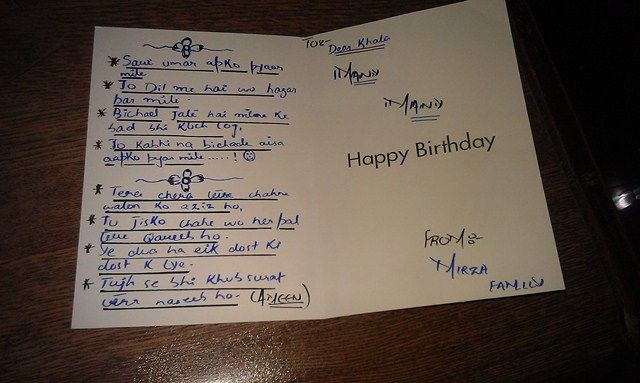 * Sari umar apko pyaar
mile
* Jo Dil me hai wo hazar
bar mile.
* Bichad Jate hai milne Ke
bad bhi Kuch log,
* Jo Kabhi na bichade aisa
aapko pyar mile.....!
* Tera chera tere chahne
walon Ko aziz ho,
* Tu Jisko chahe wo her pal
tere Qareeb ho.
* Ye dua ha eik dost Ki
dost K lye.
* Tujh se bhi Khubsurat
tera naseeb ho. (AMEEN)
TO:-
Dear Khala
MANY
MANY
Happy Birthday
FROM:-
MIRZA
FAMILY